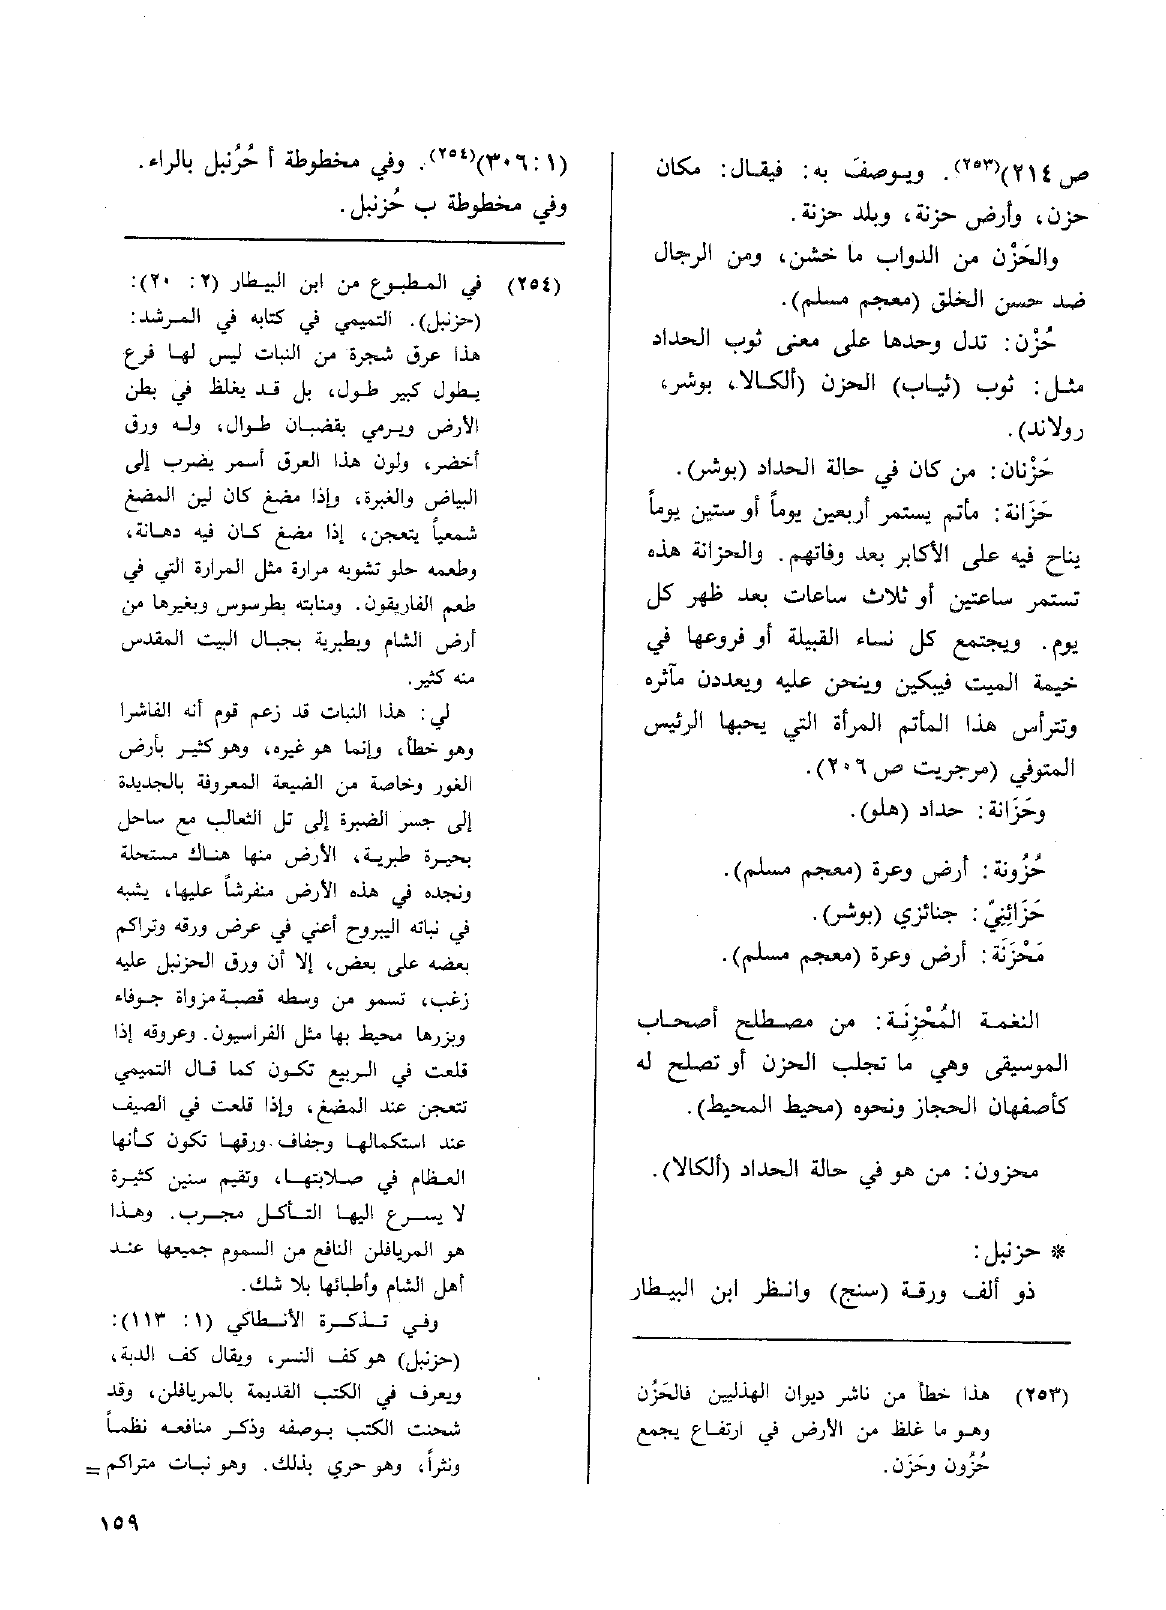 ص ٢١٤)(٢٥٣). ويوصف به: فيقال: مكان
حزن، وأرض حزنة، وبلد حزنة.
والحَزْن من الدواب ما خشن، ومن الرجال
ضد حسن الخلق (معجم مسلم).
حُزْن: تدل وحدها على معنى ثوب الحداد
مثل: ثوب (ثياب) الحزن (ألكالا، بوشر،
رولاند).
حَزْنان: من كان في حالة الحداد (بوشر).
حَزَانة: مأتم يستمر أربعين يوماً أو ستين يوماً
يناح فيه على الأكابر بعد وفاتهم. والحزانة هذه
تستمر ساعتين أو ثلاث ساعات بعد ظهر كل
يوم. ويجتمع كل نساء القبيلة أو فروعها في
خيمة الميت فيبكين وينحن عليه ويعددن مآثره
وتترأس هذا المأتم المرأة التي يحبها الرئيس
المتوفي (مرجريت ص ٢٠٦).
وحَزَانة: حداد (هلو).
حُزُونة: أرض وعرة (معجم مسلم).
حَزَائنِيّ: جنائزي (بوشر).
مَحْزَنَة: أرض وعرة (معجم مسلم).
النغمة المُحْزِنَة: من مصطلح أصحاب
الموسيقى وهي ما تجلب الحزن أو تصلح له
كأصفهان الحجاز ونحوه (محيط المحيط).
محزون: من هو في حالة الحداد (ألكالا).
* حزنبل:
ذو ألف ورقة (سنج) وانظر ابن البيطار
(٢٥٣) هذا خطأ من ناشر ديوان الهذليين فالحَزْن
وهو ما غلظ من الأرض في ارتفاع يجمع
حُزُون وحَزَن.
(١: ٣٠٦)(٢٥٤). وفي مخطوطة أ حُرُنبل بالراء.
وفي مخطوطة ب حُزنبل.
(٢٥٤) في المطبوع من ابن البيطار (٢: ٢٠):
(حزنبل). التميمي في كتابه في المرشد:
هذا عرق شجرة من النبات ليس لها فرع
يطول كبير طول، بل قد يغلظ في بطن
الأرض ويرمي بقضبان طوال، وله ورق
أخضر، ولون هذا العرق أسمر يضرب إلى
البياض والغبرة، وإذا مضغ كان لين المضغ
شمعياً يتعجن، إذا مضغ كان فيه دهانة،
وطعمه حلو تشوبه مرارة مثل المرارة التي في
طعم الفاريقون. ومنابته بطرسوس وبغيرها من
أرض الشام وبطبرية بجبال البيت المقدس
منه كثير.
لي: هذا النبات قد زعم قوم أنه الفاشرا
وهو خطأ، وإنما هو غيره، وهو كثير بأرض
الغور وخاصة من الضيعة المعروفة بالجديدة
إلى جسر الضبرة إلى تل الثعالب مع ساحل
بحيرة طبرية، الأرض منها هناك مستحلة
ونجده في هذه الأرض منفرشاً عليها، يشبه
في نباته اليبروح أعني في عرض ورقه وتراكم
بعضه على بعض، إلا أن ورق الحزنبل عليه
زغب، تسمو من وسطه قصبة مزواة جوفاء
وبزرها محيط بها مثل الفراسيون. وعروقه إذا
قلعت في الربيع تكون كما قال التميمي
تتعجن عند المضغ، وإذا قلعت في الصيف
عند استكمالها وجفاف ورقها تكون كأنها
العظام في صلابتها، وتقيم سنين كثيرة
لا يسرع اليها التأكل مجرب. وهذا
هو المريافلن النافع من السموم جميعها عند
أهل الشام وأطبائها بلا شك.
وفي تذكرة الأنطاكي (١: ١١٣):
(حزنبل) هو كف النسر، ويقال كف الدبة،
ويعرف في الكتب القديمة بالمريافلن، وقد
شحنت الكتب بوصفه وذكر منافعه نظماً
ونثراً، وهو حري بذلك. وهو نبات متراكم =
١٥٩